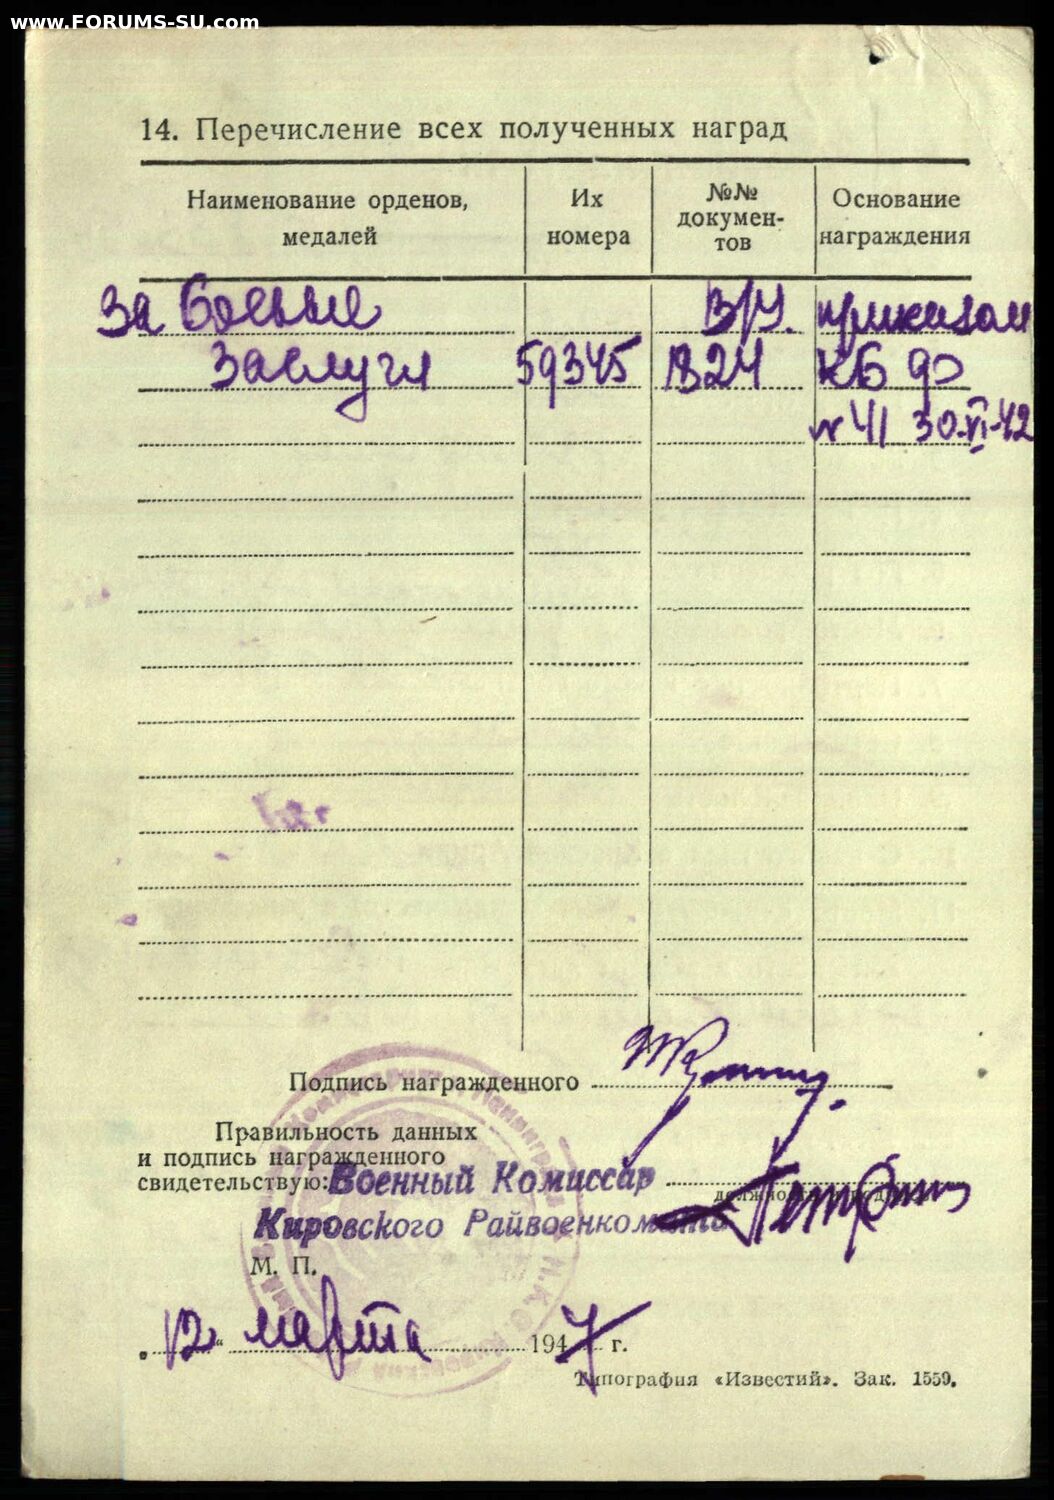 www.FORUMS-SU.com
14. Перечисление всех полученных наград
Наименование орденов, медалей
Их номера
№№ докумен-тов
Основание награждения
За боевые В/У. приказом
заслуги 59345 КБФ
№ 41 30.VI-42
Подпись награжденного
Правильность данных
и подпись награжденного
свидетельствую: Военный Комиссар
Кировского Райвоенкомата
М. П.
"12" марта 1947 г.
Типография «Известий». Зак. 1559.